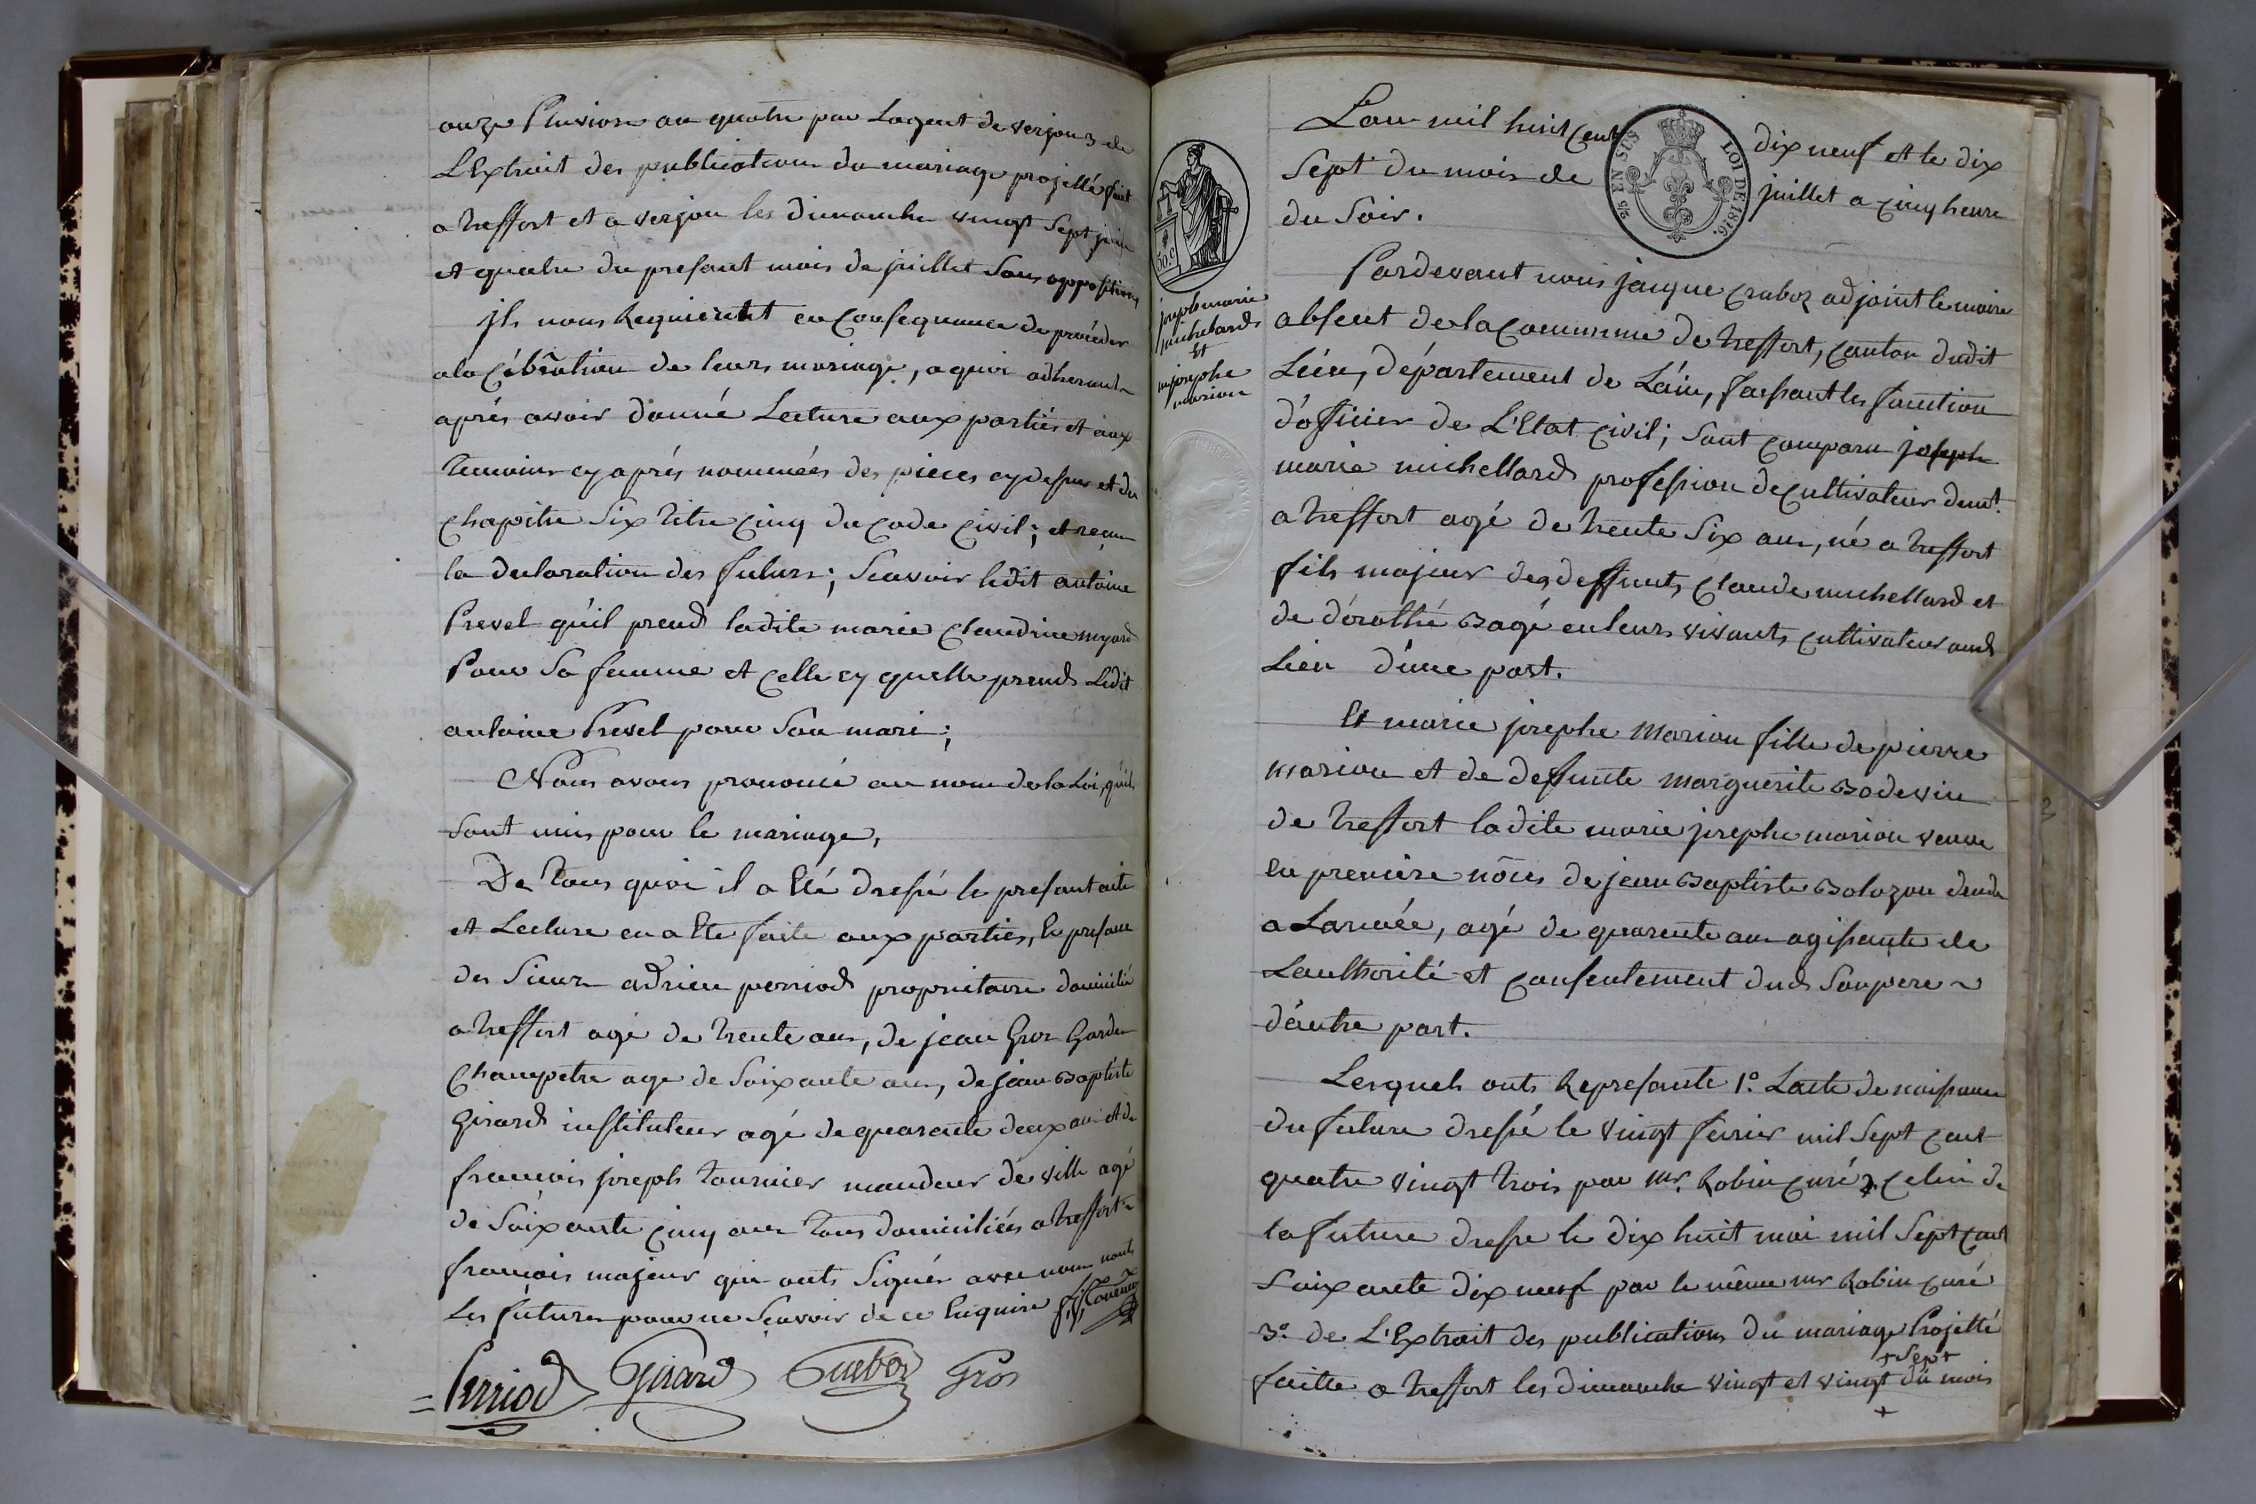 onze Pluviose an quatre par Lagent de verjon 3 de
L'Extrait des publications du mariage projetté fait
a treffort et a verjon les dimanche vingt Sept juin
et quatre du presant mois de juillet Sans oppositions
jls nous Requierent en Consequance de proceder
ala Célébration de leurs mariage, a quoi adherant
aprés avoir donné Lecture aux partiés et aux
temoins cy aprés nommées des pieces cydessus et du
Chapitre Six titre Cinq du Code Civil; et reçu
la declaration des futurs; Scavoir ledit antoine
Prevel qu'il prend ladite marie Claudine myard
Pour Sa femme et Celle cy quelle prends Ledit
antoine Prevel pour Son mari;
Nous avons prononcé au nom de la Loi, qu'ils
Sont unis pour le mariage,
De tous quoi il a Eté dressé le presant acte
et Lecture en a Ete faite aux parties, En presance
des Sieurs adrien perriod propriétaire domicilié
a treffort agé de trente ans, de jean Gros Garde
Champetre age de Soixante ans, de jean Baptiste
Girard instituteur agé de quarante deux ans et de
francois joseph tournier mandeur de ville agé
de Soixante Cinq ans tous domiciliés a treffort
francois majeur qui onts Signés avec nous nonts
Les futures pour ne Scavoir de ce Enquire
Perriod Girard Craboz Gros
L'an mil huit Cent dix neuf et le dix
Sept du mois de juillet a Cinq heure
du Soir.
2/5 EN SUS
LOI DE 1816.
50.c
joseph marie
michelard
Et
m josephe
marion
Pardevant nous jacque Craboz adjoint le maire
absent de la Commune de treffort, Canton dudit
Lieu, département de L'ain, faisant les fonction
d'officier de L'Etat Civil; Sont Comparu joseph
marie michellard profession de Cultivateur demt.
a treffort agé de trente Six ans, né a treffort
fils majeur des deffunts Claude michellard et
de dorothé Bagé en leurs vivants Cultivateur aud
Lieu d'une part.
Et marie josephe Marion fille de pierre
Marion et de deffunte Marguerite Bodevin
de treffort ladite marie josephe marion veuve
En premiere nôces de jean Baptiste Bolozon décédé
a Larmée, agé de quarente ans agissante de
Lauthorité et Consentement dud Son pere
d'autre part.
Lesquels onts Represante 1.o Lacte de naissance
du future dressé le vingt fevrier mil Sept Cent
quatre vingt trois par mr. Robin Curé 2. Celui de
la future dresse le dix huit mai mil Sept Cent
Soixante dix neuf par le même mr Robin Curé
3.o de L'Extrait des publications du mariage Projetté
+ Sept
faitte a treffort les dimanche vingt et vingt + du mois